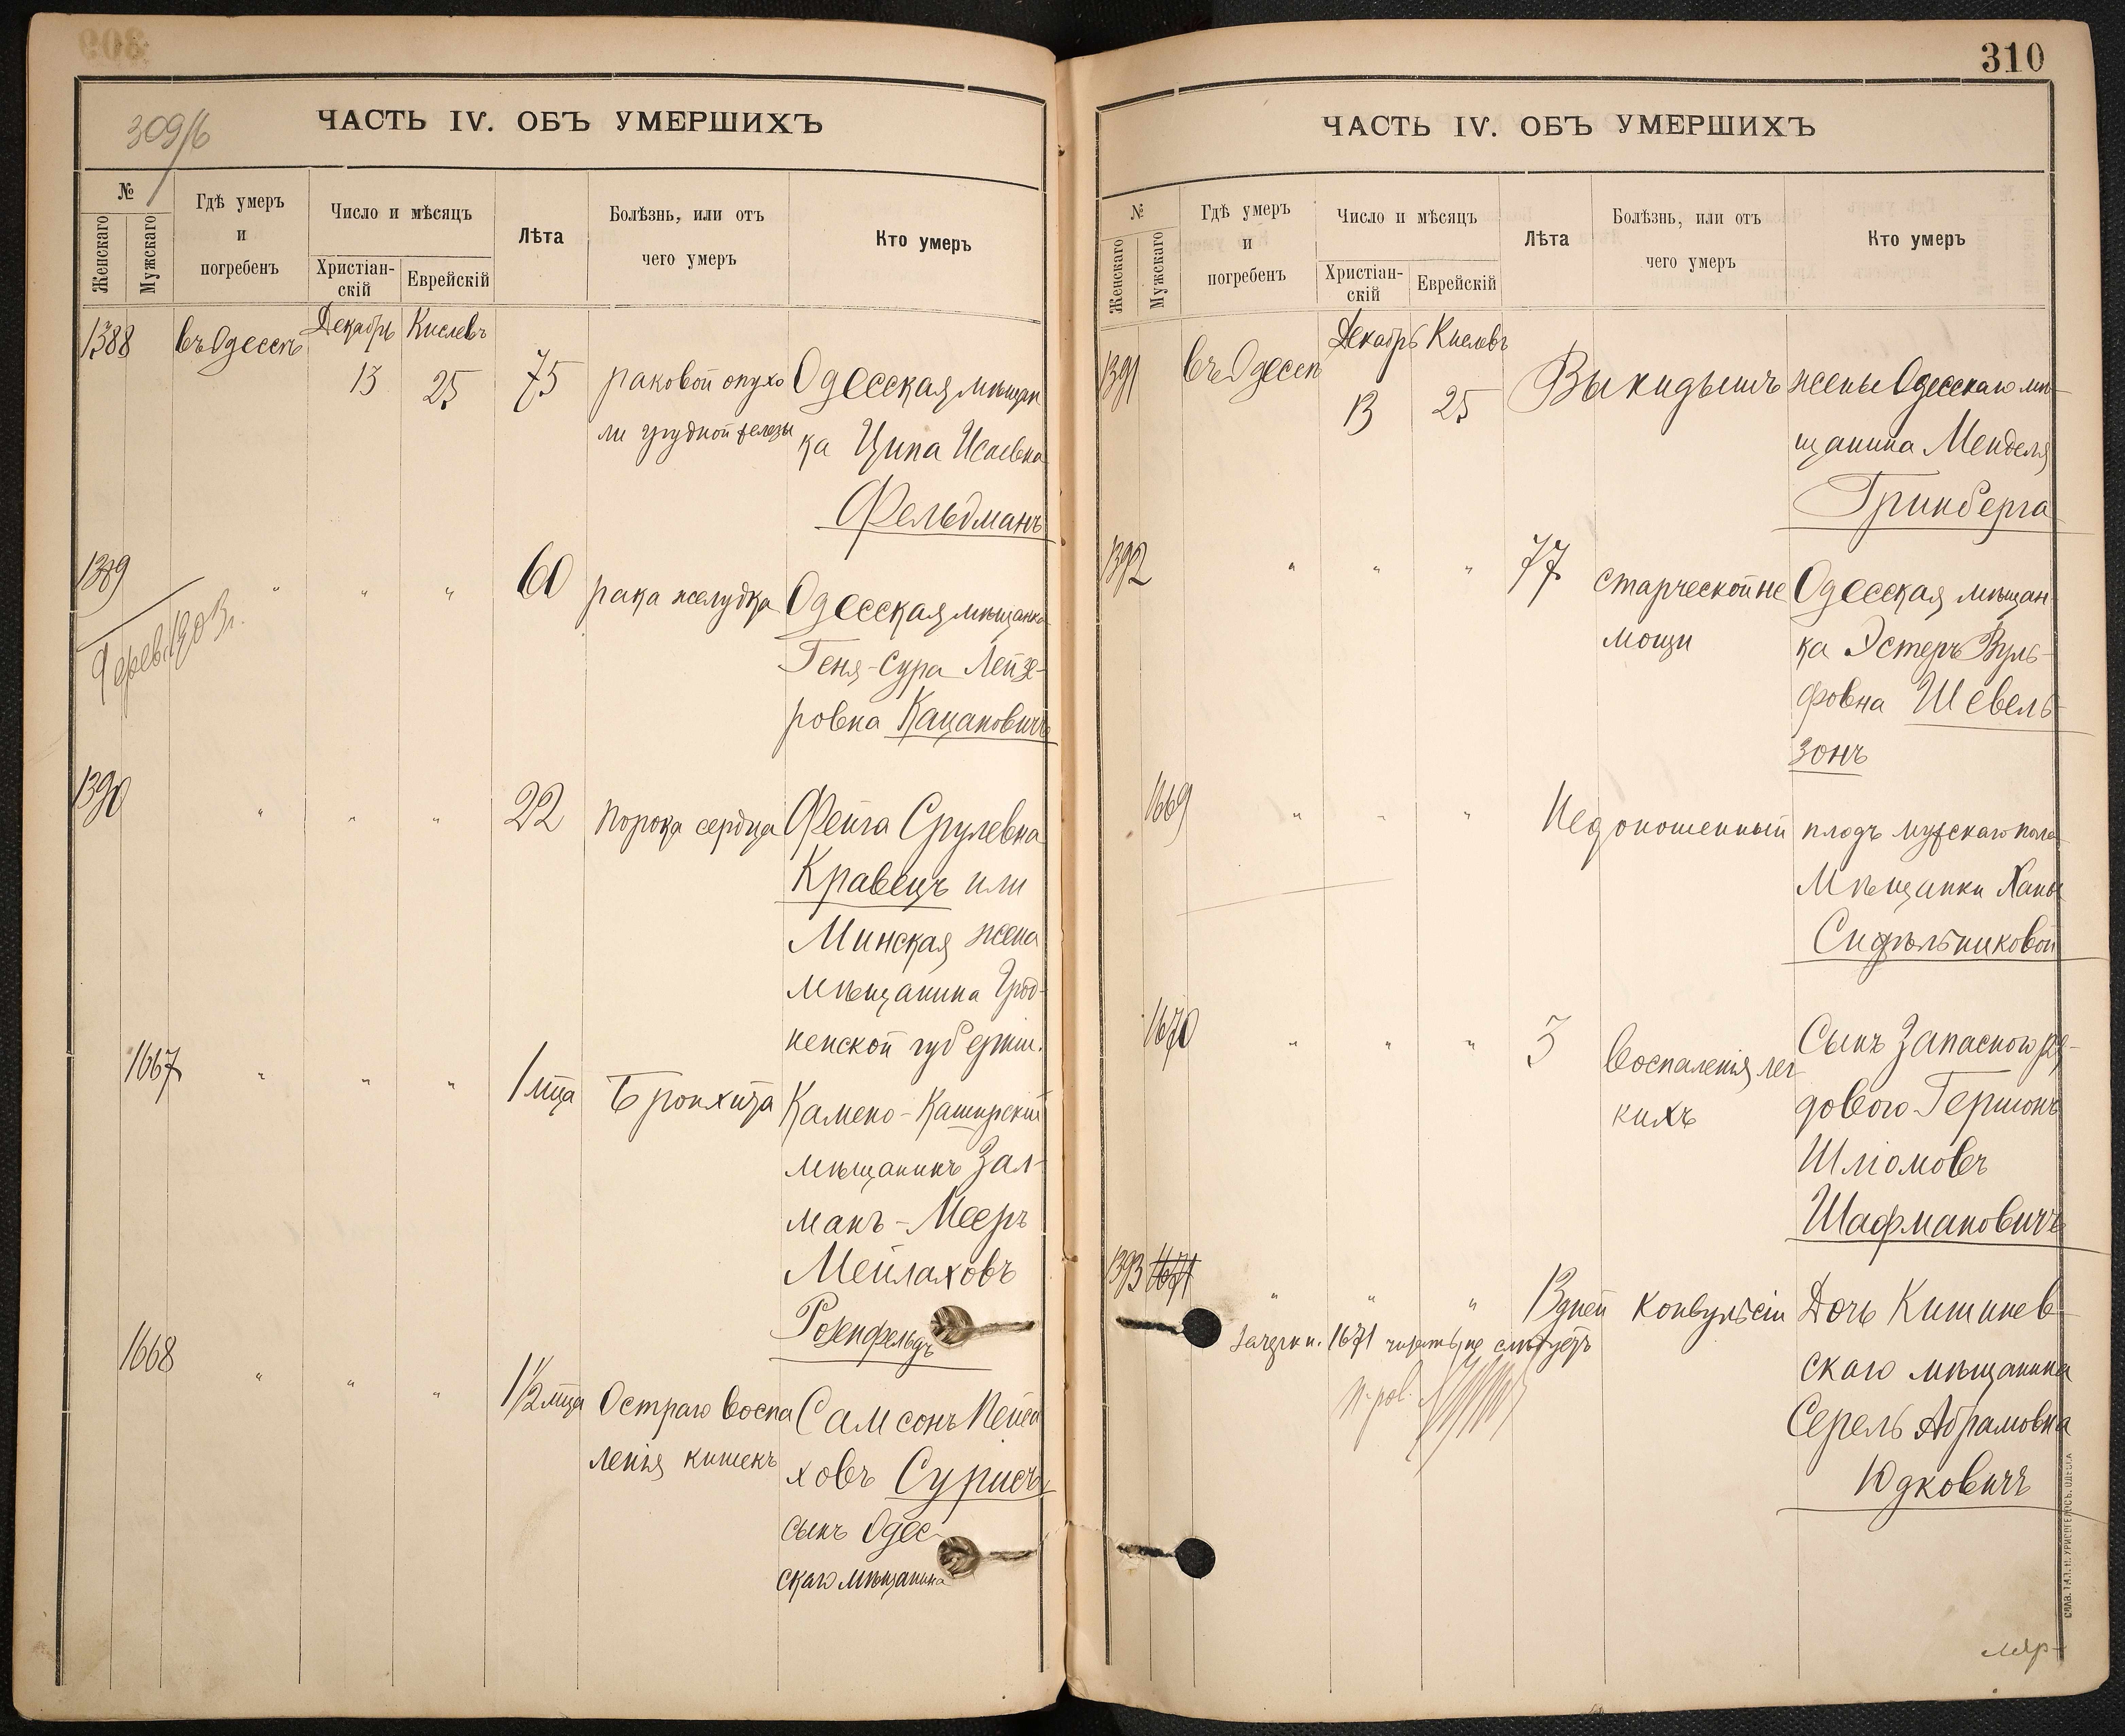 309/б
ЧАСТЬ IV. ОБЪ УМЕРШИХЪ
№
Женскаго
Мужскаго
Гдѣ умеръ
и
погребенъ
Число и мѣсяцъ
Христіан-
скій
Еврейскій
Лѣта
Болѣзнь, или отъ
чего умеръ
Кто умеръ
1388 въ Одессѣ Декабрь Кислевъ
13 25 75 раковой опухо Одесская мѣщан
ли грудной железы ка Ципа Исаевна
Фельдманъ
1389 " " " 60 рака желудка Одесская мѣщанка
9 февр. 1903 г.
Геня-Сура Лейзе-
ровна Кацановичъ
1390 " " " 22 порока сердца Фейга Срулевна
Кравецъ или
Минская жена
мѣщанина Грод-
ненской губерніи.
1667 " " " 1 мца Бронхита Камено-Каширскій
мѣщанинъ Зал-
манъ-Мееръ
Мейлаховъ
Розенфельдъ
1668 " " " 1 1/2 мца Остраго воспа Самсонъ Пейса
ленія кишекъ ховъ Сурисъ
сынъ Одес-
скаго мѣщанина
310
ЧАСТЬ IV. ОБЪ УМЕРШИХЪ
№
Женскаго
Мужскаго
Гдѣ умеръ
и
погребенъ
Число и мѣсяцъ
Христіан-
скій
Еврейскій
Лѣта
Болѣзнь, или отъ
чего умеръ
Кто умеръ
1391 въ Одессѣ Декабрь Кислевъ
13 25 Выкидышъ жены Одесскаго мѣ-
щанина Менделя
Гринберга
1392 " " " 77 старческой не Одесская мѣщан-
мощи ка Эстеръ Вуль-
фовна Шевель-
зонъ
1669 " " " Недоношенный плодъ мужскаго пола
Мѣщанки Ханы
Сидѣльниковой
1670 " " " 3 Воспаленія лег Сынъ Запасного ря-
кихъ дового Гершонъ
Шліомовъ
Шафмановичъ
1393 1671 " " " 13 дней конвульсіи Дочь Кишинев-
зачеркн. 1671 читать не слѣдуетъ
скаго мѣщанина
Серель Абрамовна
Юдковичъ